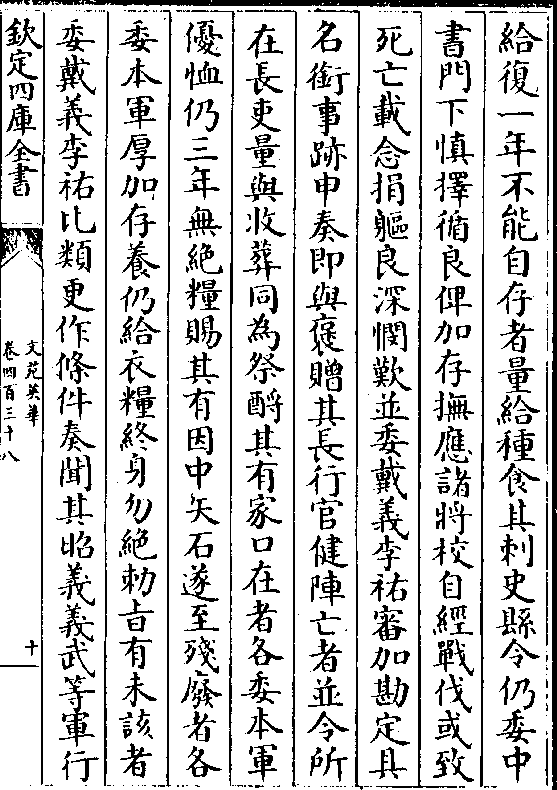 給復一年不能自存者量給種食其刺史縣令仍委中
書門下慎擇循良俾加存撫應諸將校自經戰伐或致
死亡載念捐軀良深憫歎並委戴義李祐審加勘定具
名銜事跡申奏即與褒贈其長行官健陣亡者並令所
在長吏量與收葬同為祭酹其有家口在者各委本軍
優恤仍三年無絶糧賜其有因中矢石遂至殘廢者各
委本軍厚加存養仍給衣糧終身勿絶勅旨有未該者
委戴義李祐比類更作條件奏聞其昭義義武等軍行
欽定四庫全書
文苑英華
卷四百三十八
十